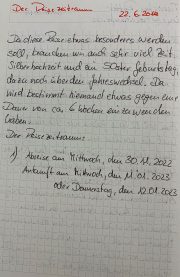 Der Reisezeitraum
22.6.2022
Da diese Reise etwas besonderes werden
soll, brauchen wir auch sehr viel Zeit.
Silberhochzeit und ein 50ster Geburtstag,
dazu noch über den Jahreswechsel. Da
wird bestimmt niemand etwas gegen eine
Dauer von ca. 6 Wochen einzuwenden
haben.
Der Reisezeitraum:
1) Abreise am Mittwoch, den 30.11.2022
Ankunft am Mittwoch, den 11.01.2023
oder Donnerstag, den 12.01.2023